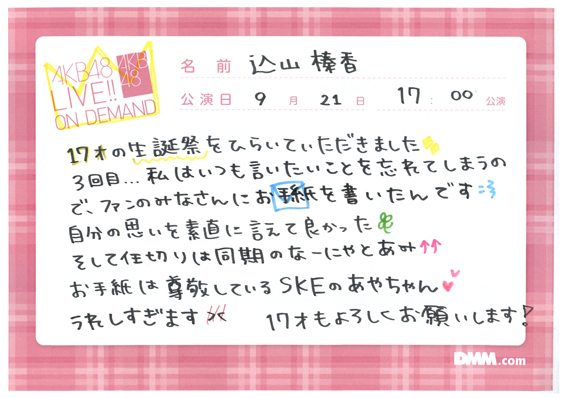 AKB48
LIVE!!
ON DEMAND
AKB
48
名前 込山榛香
公演日 9月21日 17:00公演
17才の生誕祭をひらいていただきました
3回目…私はいつも言いたいことを忘れてしまうの
で、ファンのみなさんにお手紙を書いたんです
自分の思いを素直に言えて良かった
そして仕切りは同期のなーにゃとあみ↑↑
お手紙は尊敬しているSKEのあやちゃん
うれしすぎます
17才もよろしくお願いします!
DMM.com